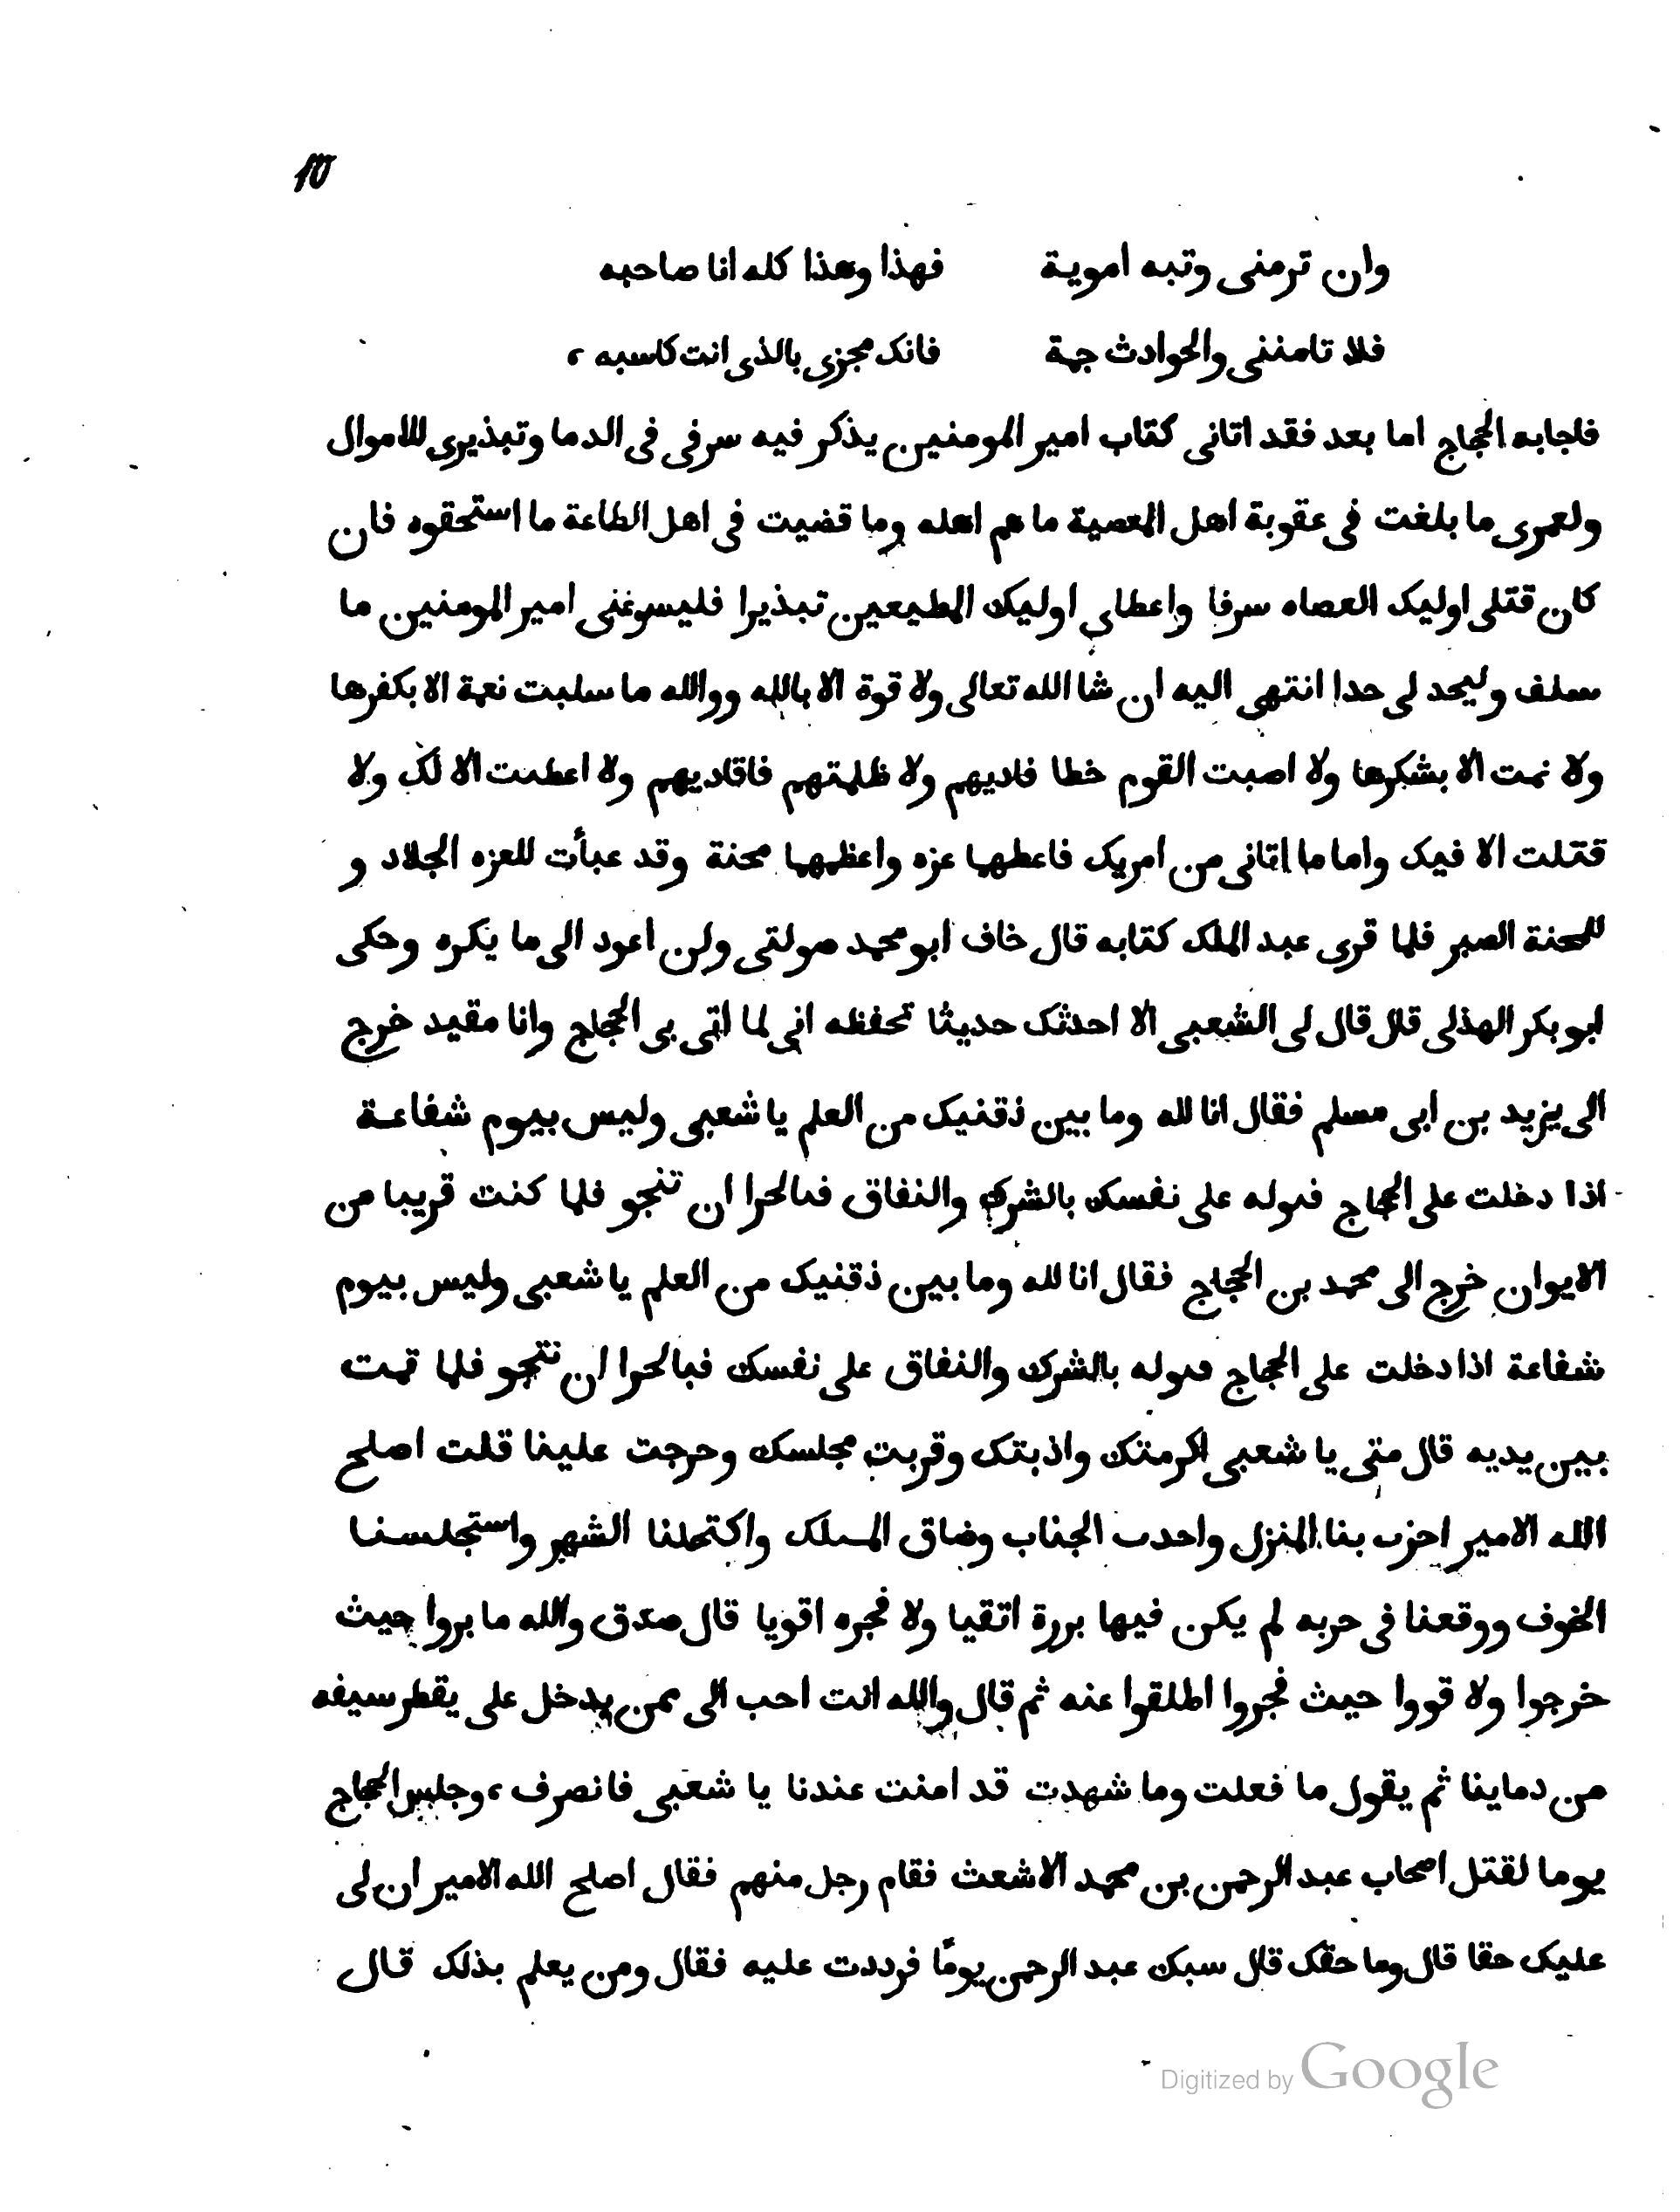 10
وان ترمنى وتبه اموية فهذا وهذا كله انا صاحبه
فلا تامننى والحوادث جمة فانك مجزى بالذى انت كاسبه ،
فاجابه الحجاج اما بعد فقد اتانى كتاب امير المومنين يذكر فيه سرفى فى الدما وتبذيرى للاموال
ولعمرى ما بلغت فى عقوبة اهل المعصية ما هم اهله وما قضيت فى اهل الطاعة ما استحقوه فان
كان قتلى اوليك العصاه سرفا واعطاى اوليك المطيعين تبذيرا فليسوغنى امير المومنين ما
سلف وليحد لى حدا انتهى اليه ان شا الله تعالى ولا قوة الا بالله ووالله ما سلبت نعمة الا بكفرها
ولا نمت الا بشكرها ولا اصبت القوم خطا فاديهم ولا ظلمتهم فاقاديهم ولا اعطيت الا لك ولا
قتلت الا فيك واما ما اتانى من امريك فاعطها عزه واعظمهما محنة وقد عبأت للعزه الجلاد و
للمحنة الصبر فلما قرى عبد الملك كتابه قال خاف ابو محمد صولتى ولن اعود الى ما يكره وحكى
ابو بكر الهذلى قال قال لى الشعبى الا احدثك حديثا تحفظه انى لما اتى بى الحجاج وانا مقيد خرج
الى يزيد بن ابى مسلم فقال انا لله وما بين ذقنيك من العلم يا شعبى وليس بيوم شفاعة
اذا دخلت على الحجاج فبوله على نفسك بالشرك والنفاق فبالحرا ان تنجو فلما كنت قريبا من
الايوان خرج الى محمد بن الحجاج فقال انا لله وما بين ذقنيك من العلم يا شعبى وليس بيوم
شفاعة اذا دخلت على الحجاج فبوله بالشرك والنفاق على نفسك فبالحرا ان تنجو فلما قمت
بين يديه قال متى يا شعبى اكرمتك واذبتك وقربت مجلسك وحرجت علينا قلت اصلح
الله الامير احزب بنا المنزل واحدب الجناب وضاق المسلك واكتحلنا الشهر واستجلسنا
الخوف ووقعنا فى حربه لم يكن فيها بررة اتقيا ولا فجره اقويا قال صدق والله ما بروا حيث
خرجوا ولا قووا حيث فجروا اطلقوا عنه ثم قال والله انت احب الى ممن يدخل على يقطر سيفه
من دماينا ثم يقول ما فعلت وما شهدت قد امنت عندنا يا شعبى فانصرف ، وجلس الحجاج
يوما لقتل اصحاب عبد الرحمن بن محمد الاشعث فقام رجل منهم فقال اصلح الله الامير ان لى
عليك حقا قال وما حقك قال سبك عبد الرحمن يومًا فرددت عليه فقال ومن يعلم بذلك قال
Digitized by Google